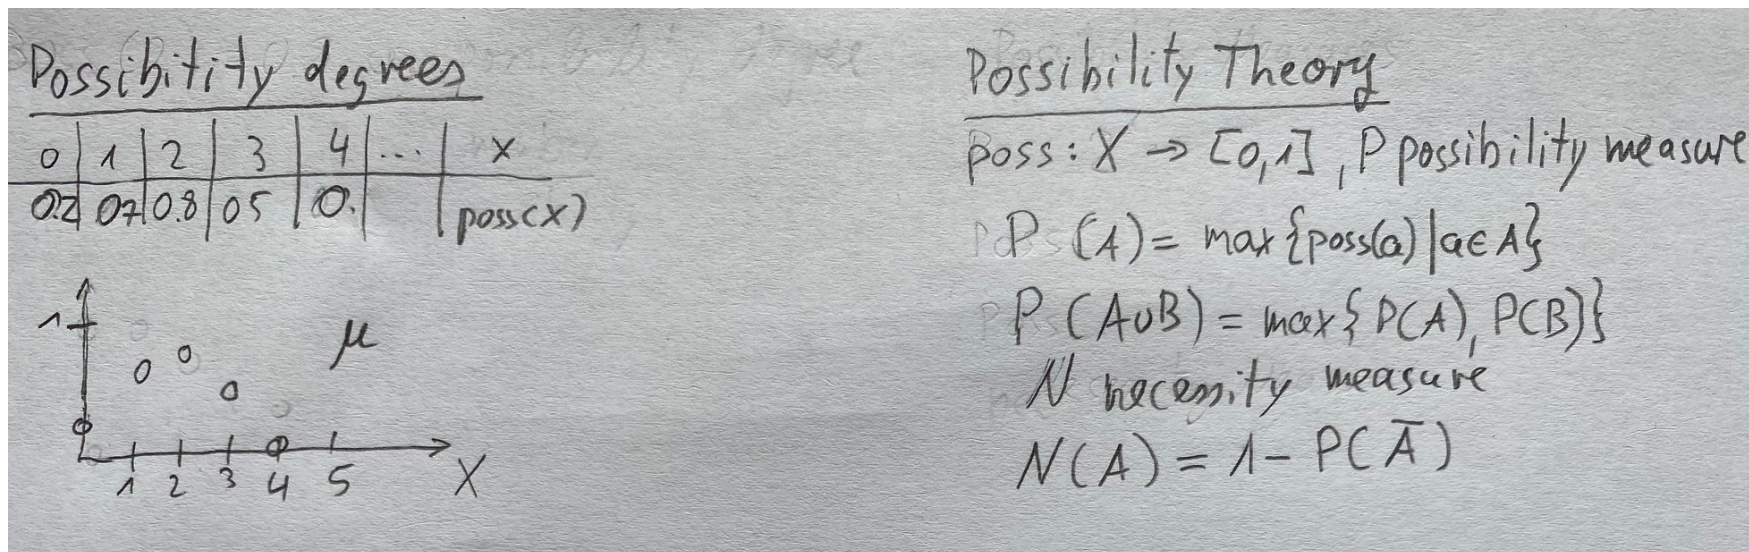 Possibitity degrees
0 | 1 | 2 | 3 | 4 | ... | x
0.2 | 07 | 0.8 | 05 | 0. | | poss(x)
1
μ
1 2 3 4 5 X
Possibility Theory
poss: X → [0,1], P possibility measure
P (A) = max{poss(a)|a∈A}
P (A∪B) = max{P(A), P(B)}
N necessity measure
N(A) = 1 - P(Ā)